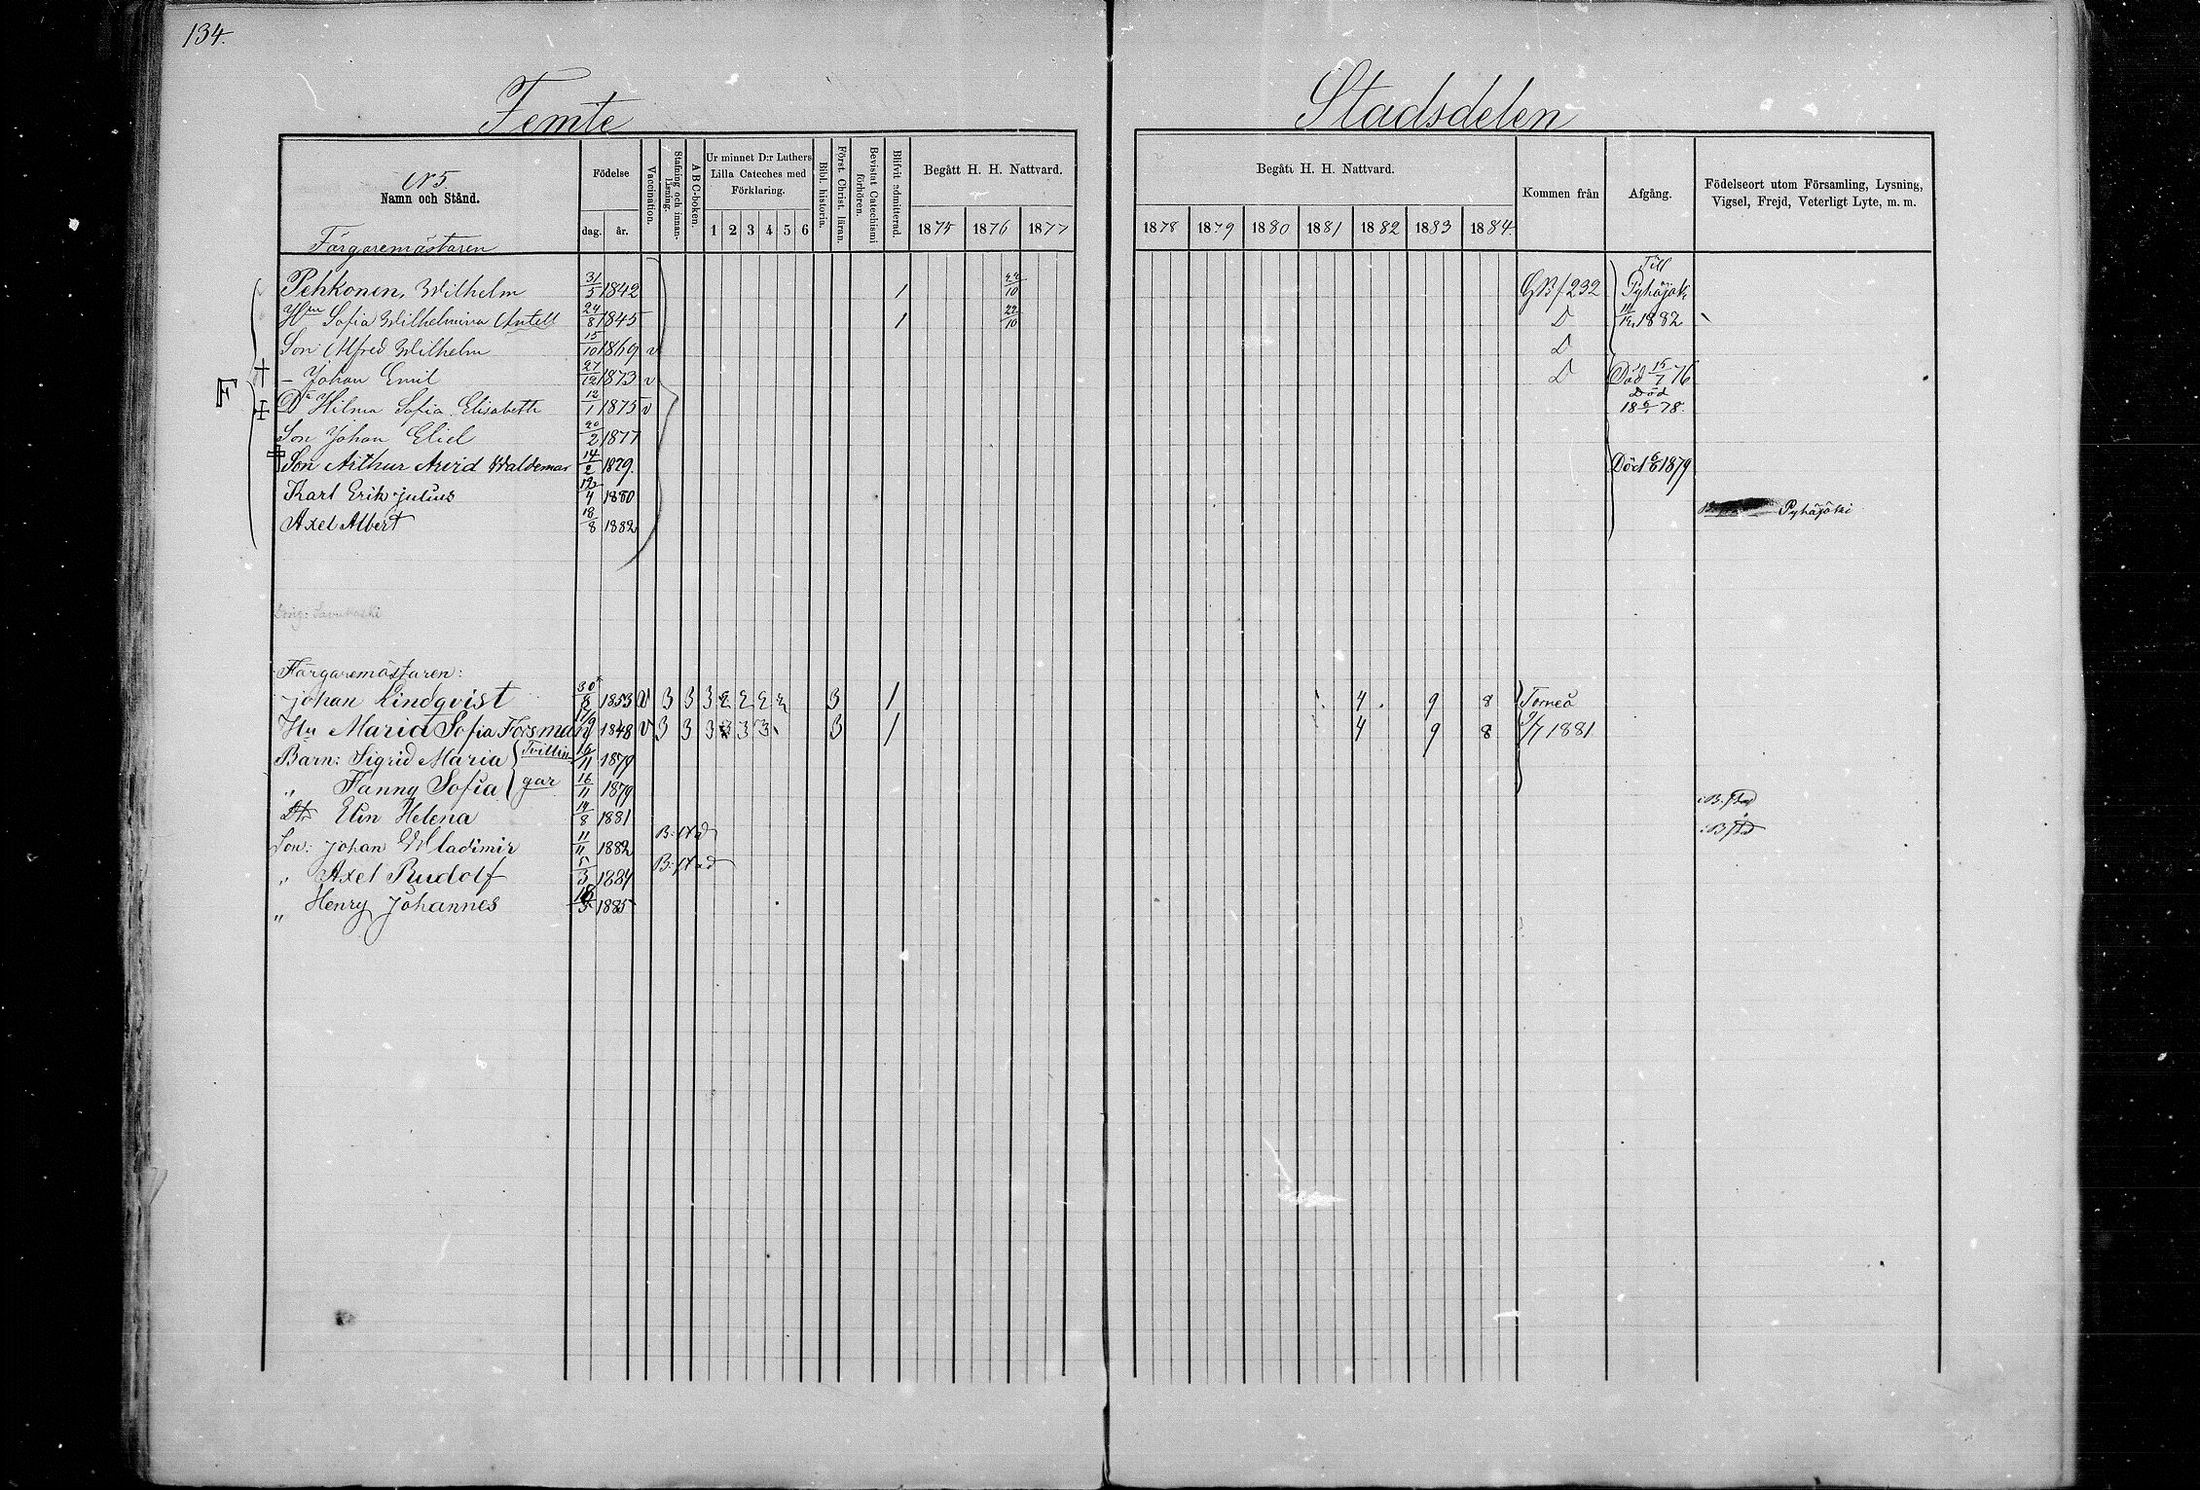 134.
Femte Stadsdelen
N 5
Namn och Stånd.
Födelse
dag. år.
Vaccination.
Stafning och innanläsning.
ABC-boken.
Ur minnet D:r Luthers Lilla Cateches med Förklaring.
1 2 3 4 5 6
Bibl. historia.
Förot. Christ. läran.
Bevistat Catechismi förhören.
Blifvit admitterad.
Begått H. H. Nattvard.
1875 1876 1877
Begåti H. H. Nattvard.
1878 1879 1880 1881 1882 1883 1884
Kommen från
Afgång.
Födelseort utom Församling, Lysning, Vigsel, Frejd, Veterligt Lyte, m. m.
Färgaremästaren
Till
Pehkonen, Wilhelm 31/5 1842 1 22/10 GB/232 Pyhäjoki
Hun Sofia Wilhelmina Antell 24/8 1845 1 22/10 D 1882
Son Alfred Wilhelm 15/10 1869 v D
F
– Johan Emil 27/12 1873 v D Död 15/7 76
Dr Hilma Sofia Elisabeth 12/1 1875 v Död 18 6/1 78.
Son Johan Eliel 20/2 1877
Son Arthur Arvid Waldemar 14/2 1879. Död 6/6 1879
Karl Erik Julius 12/4 1880
Axel Albert 18/8 1882 Pyhäjoki
Färgaremästaren:
Johan Lindqvist 30/8 1853 v 3 3 3 3 1 4 9 8 Torneå
Hu Maria Sofia Forsman 1848 v 3 3 3 3 3 3 1 4 9 8 9/7 1881
Barn: Sigrid Maria Tvillin 16/11 1879
„ Fanny Sofia gar 16/11 1879
Dtr Elin Helena 14/8 1881 i B. stad
Son: Johan Wladimir 11/11 1882 B. stad i B stad
„ Axel Rudolf 5/3 1884 B. stad
„ Henry Johannes 1885